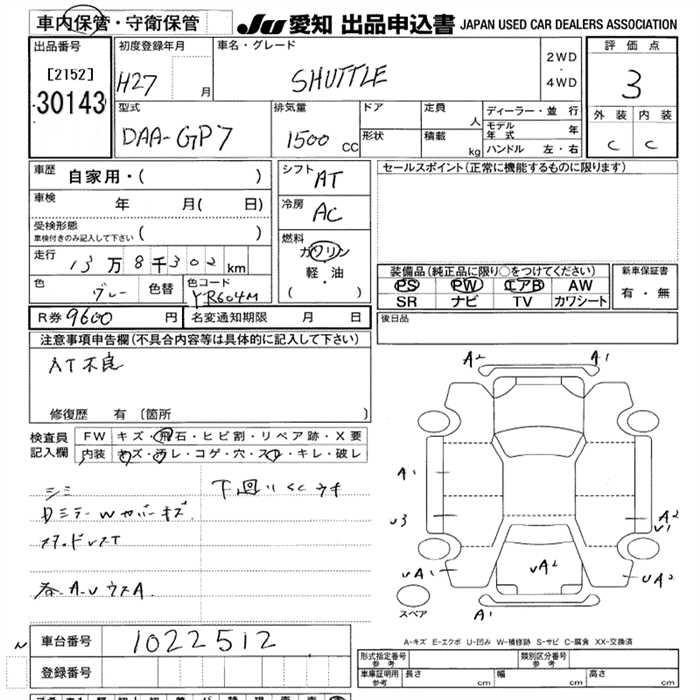 車内保管・守衛保管
JU 愛知 出品申込書 JAPAN USED CAR DEALERS ASSOCIATION
出品番号 初度登録年月 車名・グレード 2WD ・ 4WD 評価点
[2152] H27 月 SHUTTLE 3
30143
型式 排気量 ドア 定員 人 ディーラー・並行 外装 内装
DAA-GP7 1500 CC 形状 積載 kg モデル年式 年 C C
ハンドル 左・右
車歴 自家用・( ) シフト AT セールスポイント(正常に機能するものに限ります)
車検 年 月( 日) 冷房 AC
受検形態
車検付きのみ記入して下さい
燃料 ガソリン
走行 13万8千302km 軽・油
( )
装備品(純正品に限り○をつけてください) 新車保証書
色 グレー 色替 色コード YR604M
PS PW エアB AW 有・無
SR ナビ TV カワシート
R券 9600 円 名変通知期限 月 日 後日品
注意事項申告欄(不具合内容等は具体的に記入して下さい)
AT不良
修復歴 有 〔箇所 〕
検査員 FW キズ・飛石・ヒビ割・リペア跡・X要
記入欄 内装 キズ・汚レ・コゲ・穴・スレ・キレ・破レ
シミ
A2 A1
A1
U3
A2
U1
UA1
UA2
UA2
A1
スペア
A-キズ E-エクボ U-凹み W-補修跡 S-サビ C-腐食 XX-交換済
車台番号 1022512
登録番号
形式指定番号 参考 類別区分番号 参考
車庫証明用 参考 長さ cm 幅 cm 高さ cm